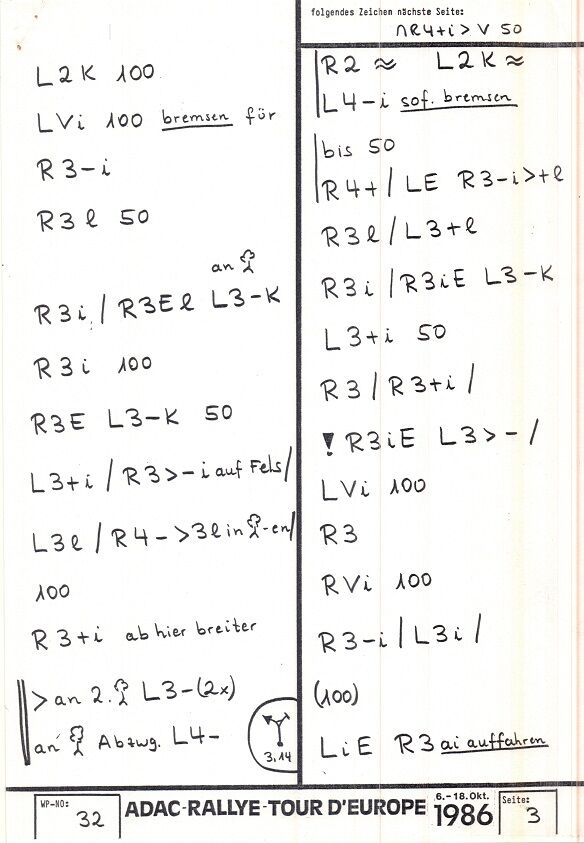 L2K 100
LVi 100 bremsen für
R3-i
R3l 50
an
R3i / R3El L3-K
R3i 100
R3E L3-K 50
L3+i / R3>-i auf Fels/
L3l / R4->3l in -en/
100
R3+i ab hier breiter
>an 2. L3-(2x)
an Abzwg. L4-
3,14
folgendes Zeichen nächste Seite:
∩R4+i > V 50
R2 ≈ L2K ≈
L4-i sof. bremsen
bis 50
R4+ / LE R3-i>+l
R3l / L3+l
R3i / R3iE L3-K
L3+i 50
R3 / R3+i /
! R3iE L3>- /
LVi 100
R3
RVi 100
R3-i / L3i /
(100)
LiE R3 ai auffahren
WP-NO: 32
ADAC-RALLYE-TOUR D'EUROPE
6.-18.Okt.
1986
Seite: 3